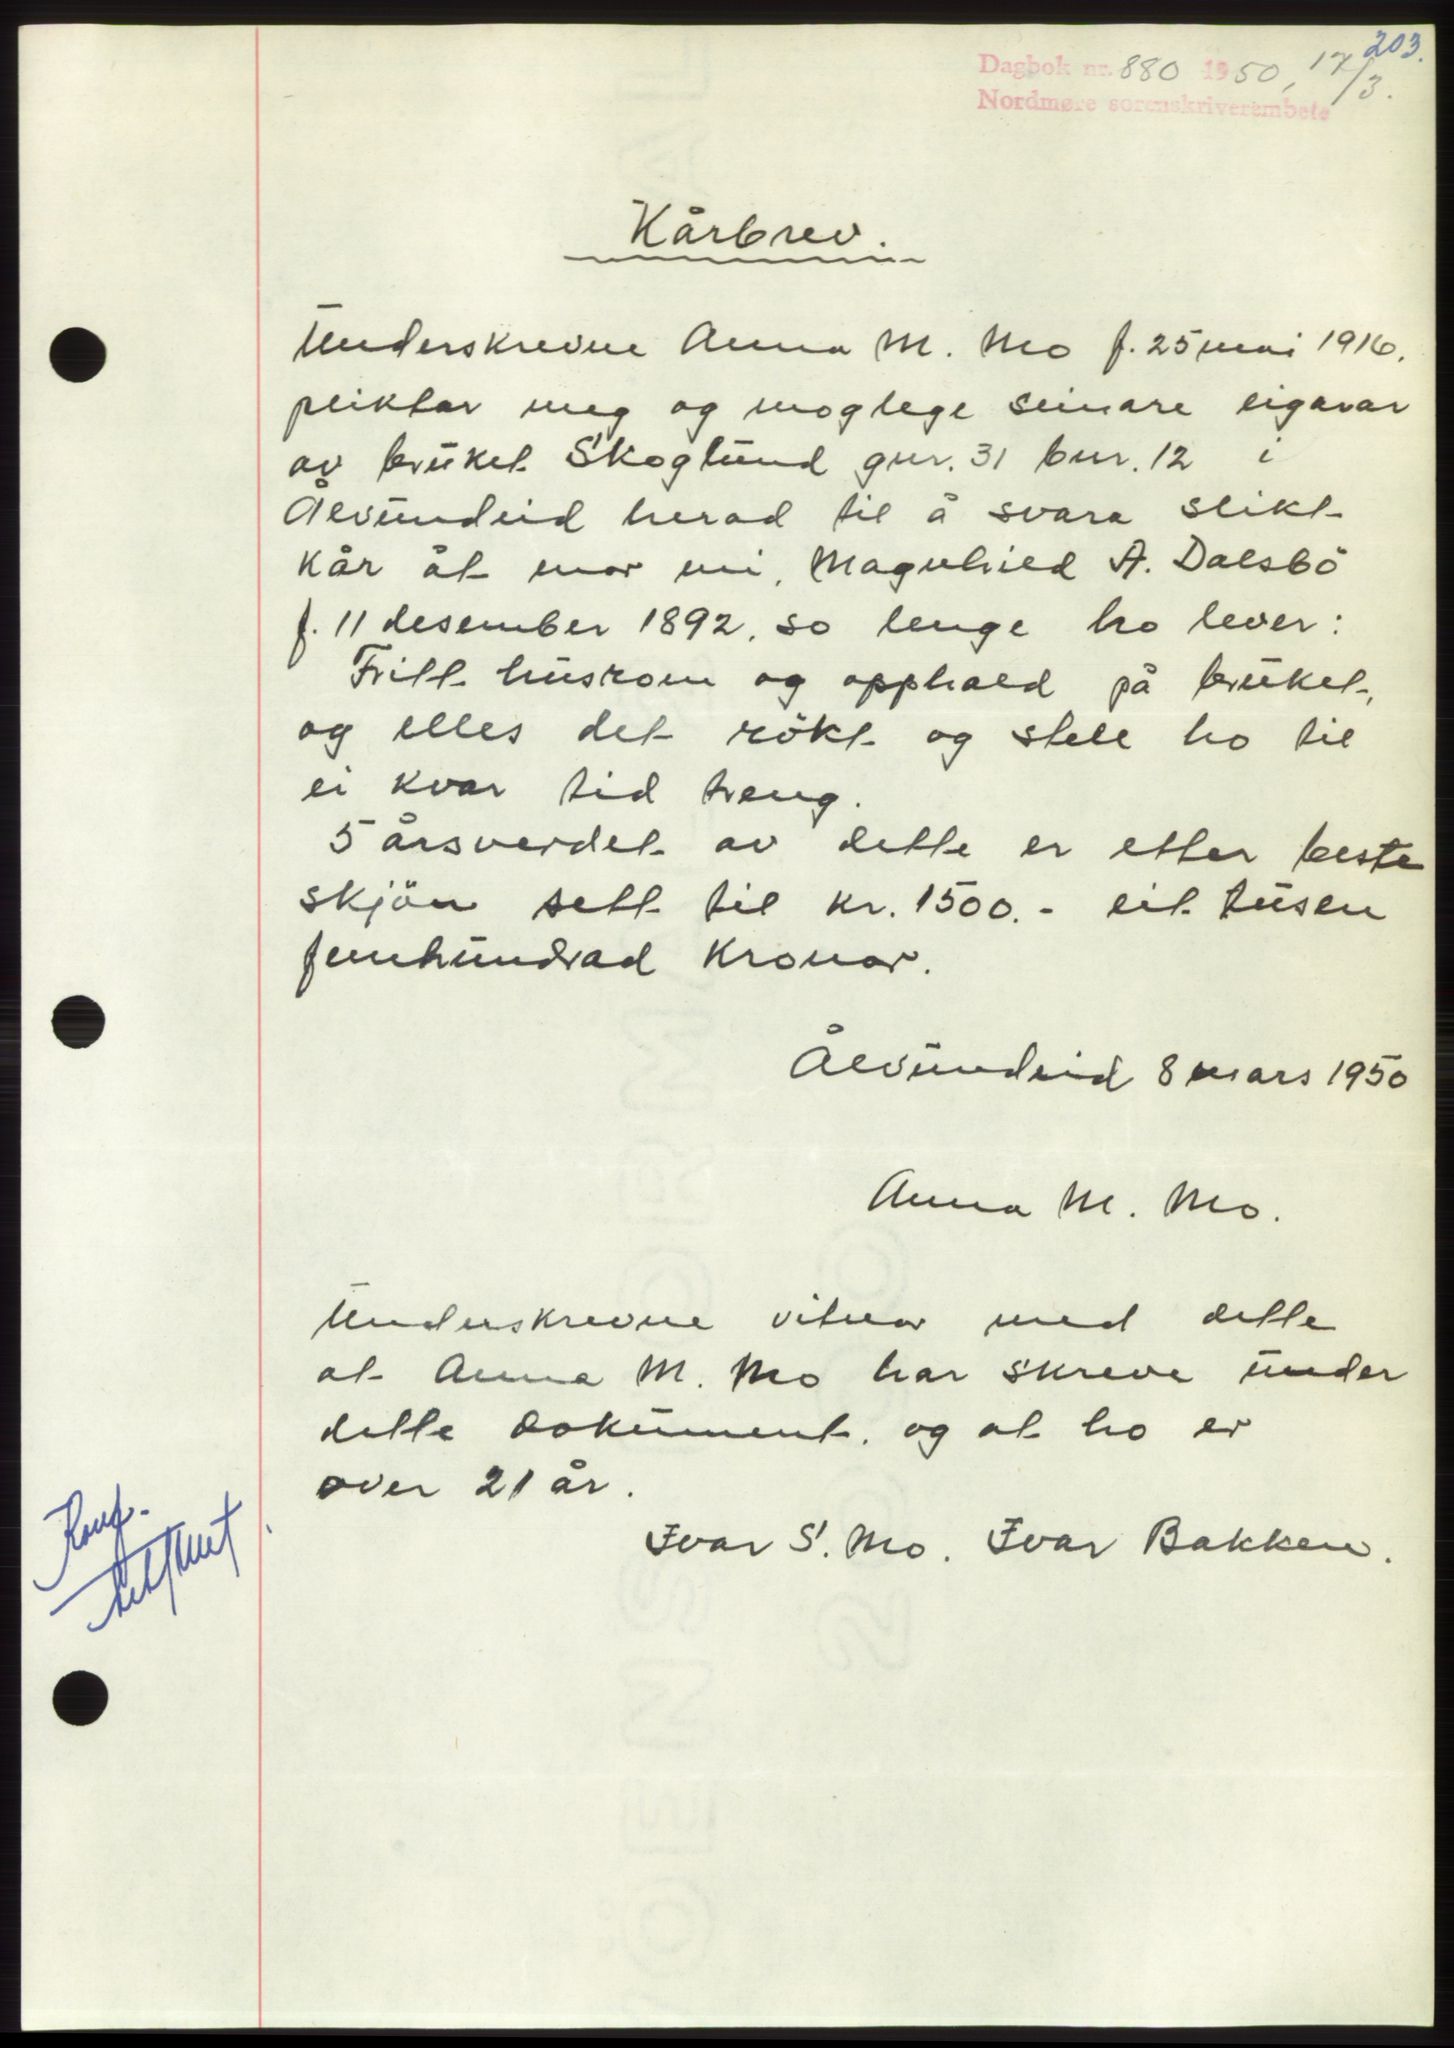 203.
Dagbok nr. 880 1950, 17/3.
Nordmøre sorenskriverembete
Kårbrev.
Underskrevne Anna M. Mo f. 25 mai 1916.
pliktar meg og moglege seinare eigarar
av bruket Skoglund gnr. 31 bnr. 12 i
Ålvundeid herad til å svara slikt
kår åt mor mi, Magnhild A. Dalsbö
f. 11 desember 1892, so lenge ho lever:
Fritt husrom og opphald på bruket,
og elles det rökt og stell ho til
ei kvar tid treng.
5 årsverdet av dette er etter beste
skjön sett til kr. 1500.- eit tusen
femhundrad kronor.
Ålvundeid 8 mars 1950
Anna M. Mo.
Underskrevne vitnar med dette
at Anna M. Mo har skreve under
dette dokument, og at ho er
over 21 år.
Ivar S. Mo. Ivar Bakken.
Konf.